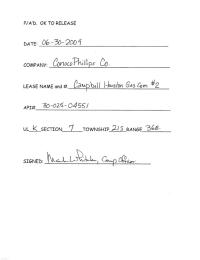 P/A'D. OK TO RELEASE
DATE 06-30-2009
COMPANY: ConocoPhillips Co.
LEASE NAME and #. Campbell Houston Gas Com #2
API# 30-025-04551
UL K SECTION 7 TOWNSHIP 21S RANGE 36E
SIGNED: